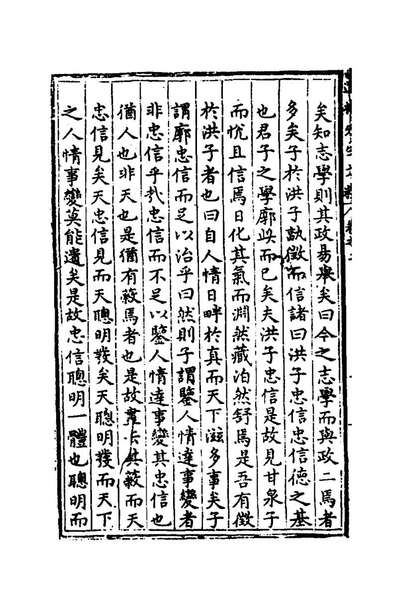 矣知志學則其政易舉矣曰今之志學而與政二焉者
多矣子於洪子孰徵而信諸曰洪子忠信忠信德之基
也君子之學廓是而已矣夫洪子忠信是故見甘泉子
而忱且信焉日化其氣而淵然藏泊然舒焉是吾有徵
於洪子者也曰自人情日畔於真而天下滋多事矣子
謂廓忠信而足以治乎曰然則子謂鑒人情達事變者
非忠信乎哉忠信而不足以鑒人情達事變其忠信也
猶人也非天也是猶有蔽焉者也是故去其蔽而天
忠信見矣天忠信見而天聰明發矣天聰明發而天下
之人情事變莫能遺矣是故忠信聰明一體也聰明而